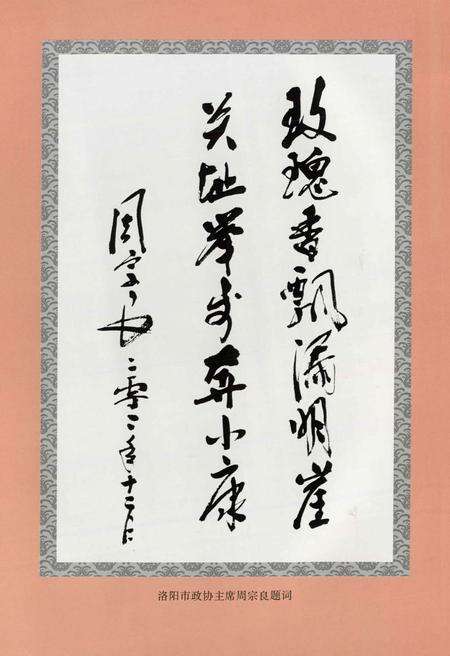 玫瑰香飘满明崖
关址举步奔小康
周宗良 二零一一年十二月
洛阳市政协主席周宗良题词